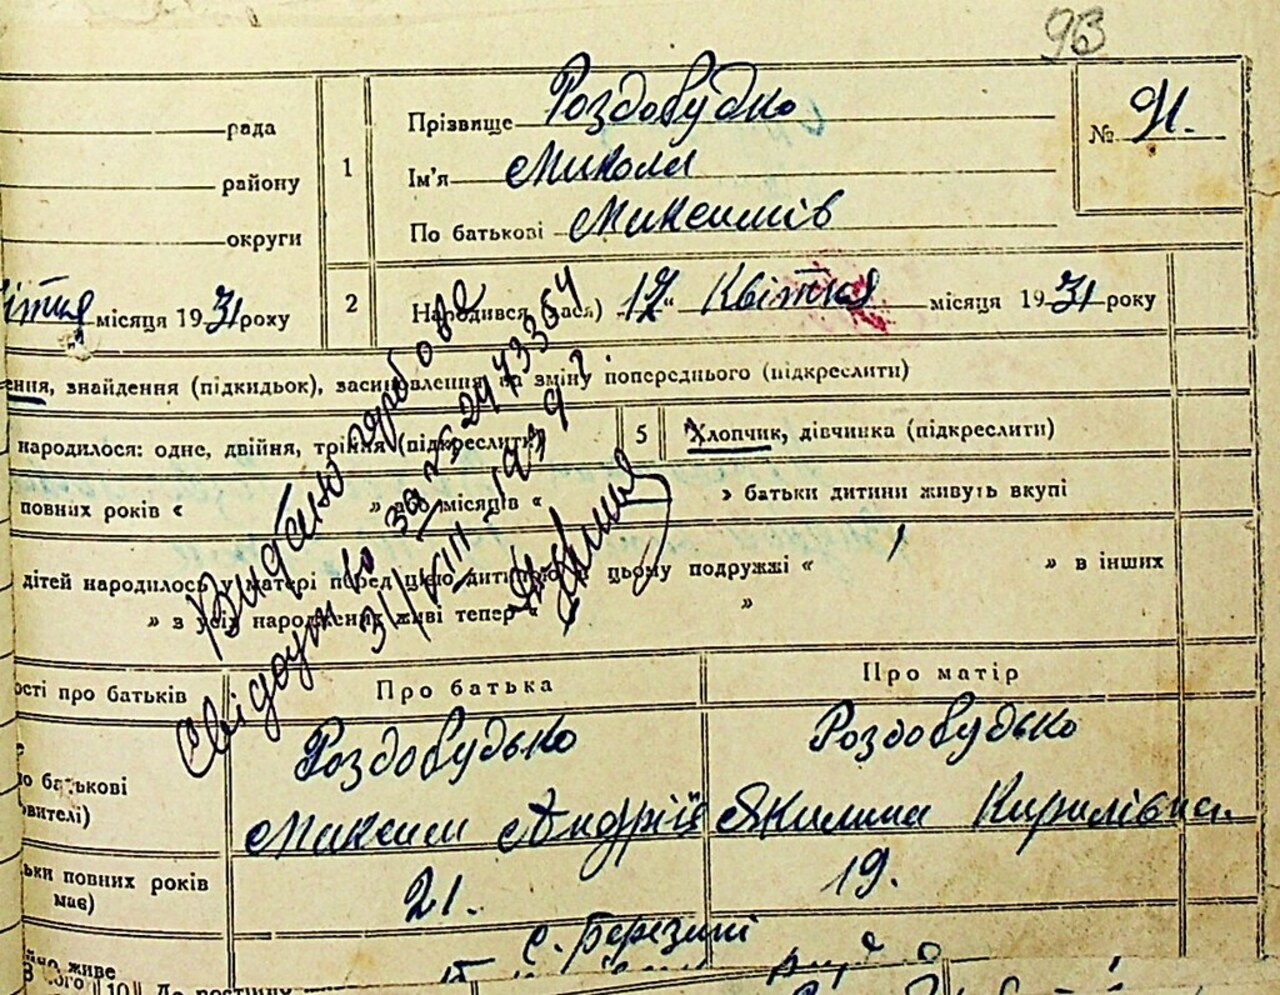 93
рада
району
округи
ітня місяця 1931 року
1
Прізвище Роздобудко
Ім'я Микола
По батькові Максимів
№ 91.
2
Народився (лася) "17" Квітня місяця 1931 року
ення, знайдення (підкидьок), засиновлення на зміну попереднього (підкреслити)
народилося: одне, двійня, трійня (підкреслити)
5
Хлопчик, дівчинка (підкреслити)
повних років « » або місяців « » батьки дитини живуть вкупі
дітей народилось у матері перед цією дитиною в цьому подружжі « 1 » в інших
» з усіх народжених живі тепер « »
Видано
Свідоцтво за № 2473364
31/VIII
ості про батьків
Про батька
Про матір
по батькові
овителі)
Роздобудько
Максим Андрій
Роздобудько
Якилина Кирилівна.
ьки повних років
має)
21.
19.
живе
с. Березині
10